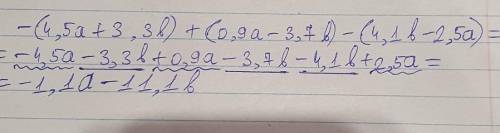 -(4,5a+3,3b)+(0,9a-3,7b)-(4,1b-2,5a)=
=-4,5a-3,3b+0,9a-3,7b-4,1b+2,5a=
=-1,1a-11,1b